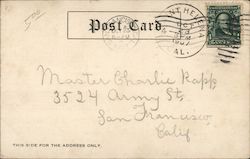 Post Card
NT HELENA
1907
AL.
Master Charlie Rapp
3524 Army St.
San Francisco
Calif
THIS SIDE FOR THE ADDRESS ONLY.